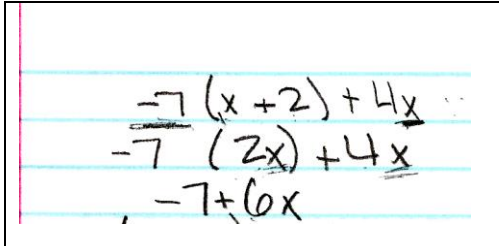 -7 (x + 2) + 4x
-7 (2x) + 4x
-7 + 6x